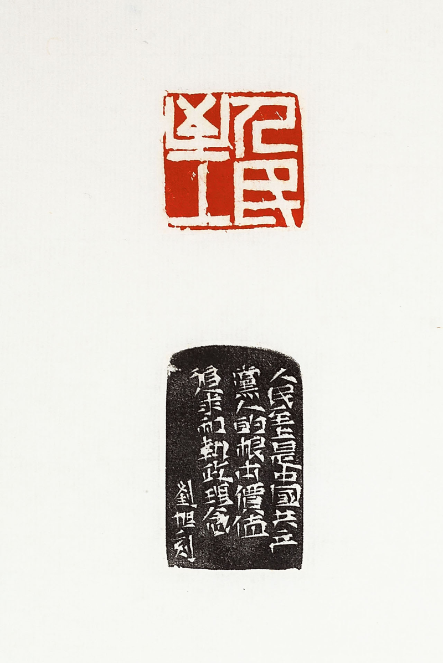 人民
至上
人民至上是中國共产
黨人的根本價值
追求和執政理念
劉旭刻